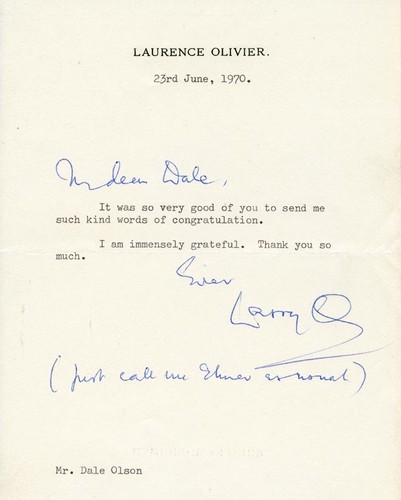 LAURENCE OLIVIER.
23rd June, 1970.
My dear Dale,
It was so very good of you to send me
such kind words of congratulation.
I am immensely grateful. Thank you so
much.
Ever
Larry O
(Just call me Elmer as usual)
Mr. Dale Olson